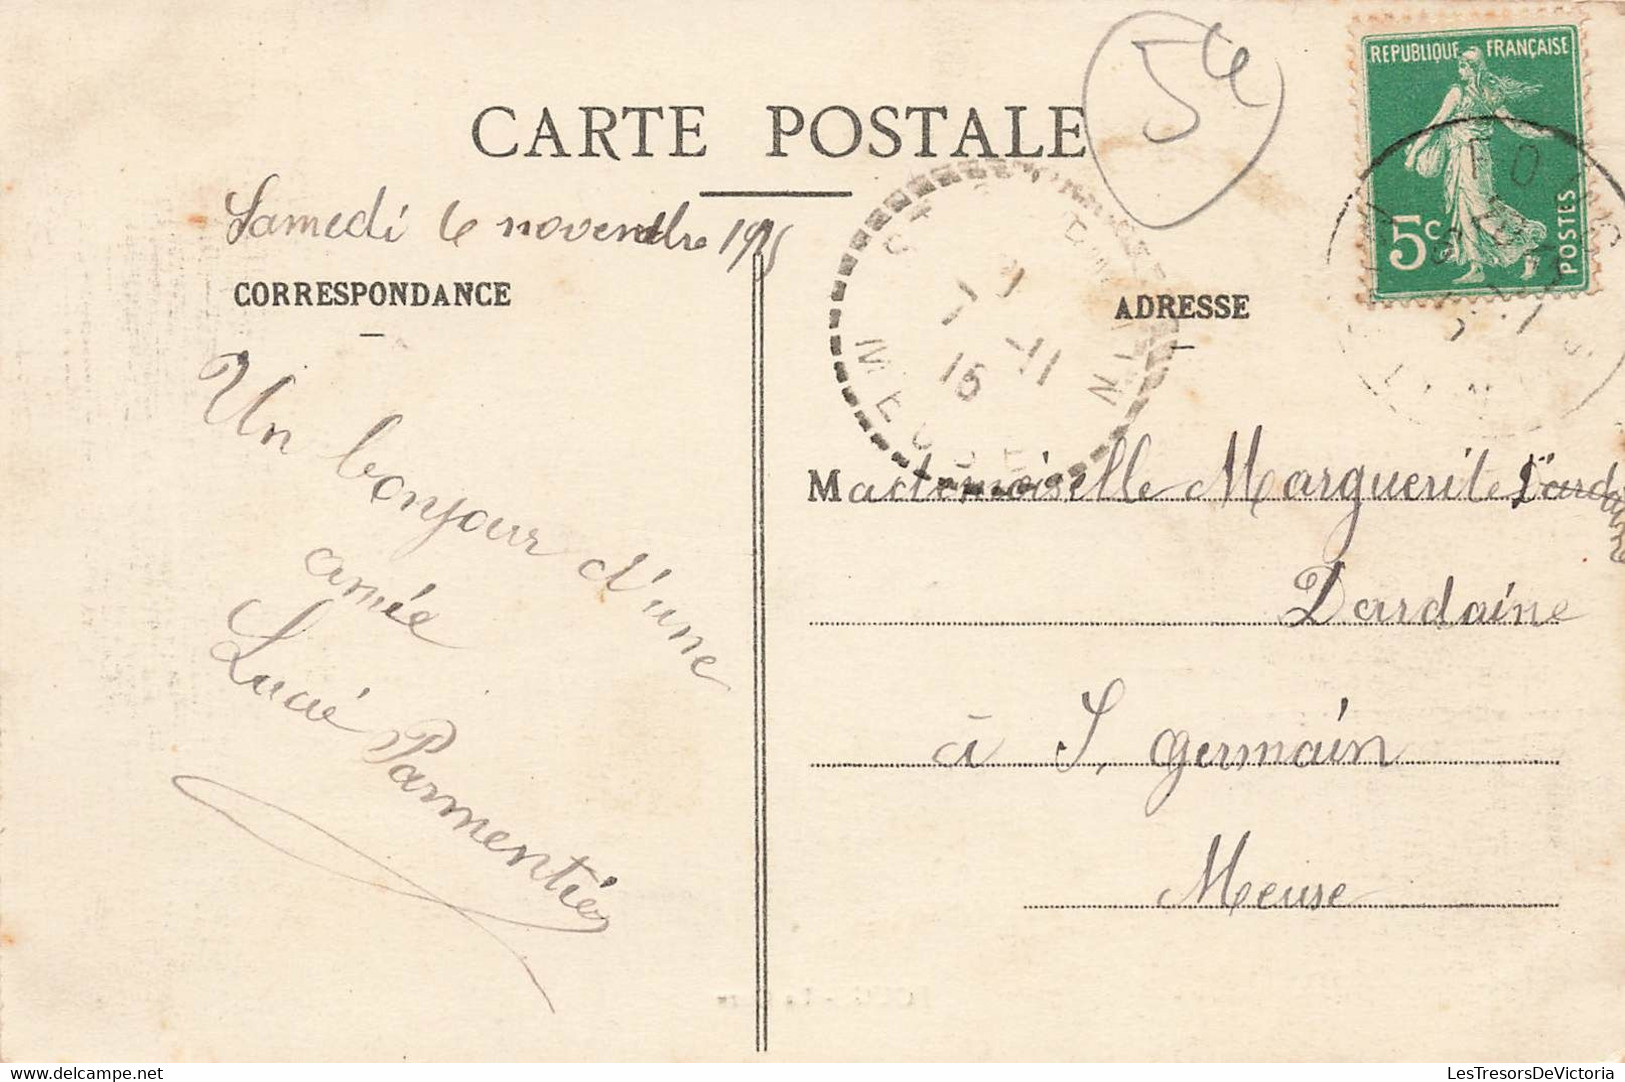 5te
REPUBLIQUE FRANÇAISE
5c
POSTES
CARTE POSTALE
Samedi 6 novembre 1915
CORRESPONDANCE
ADRESSE
MEUSE
15
-11
Un bonjour d'une
amie
Lucie Parmentier
Mademoiselle Marguerite
Dardaine
à S. germain
Meuse
LesTresorsDeVictoria
www.delcampe.net